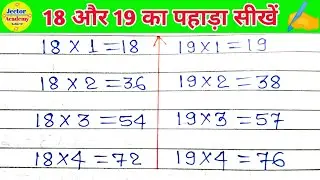 Jector
Academy
18 और 19 का पहाड़ा सीखें
18 × 1 = 18
19 × 1 = 19
18 × 2 = 36
19 × 2 = 38
18 × 3 = 54
19 × 3 = 57
18 × 4 = 72
19 × 4 = 76